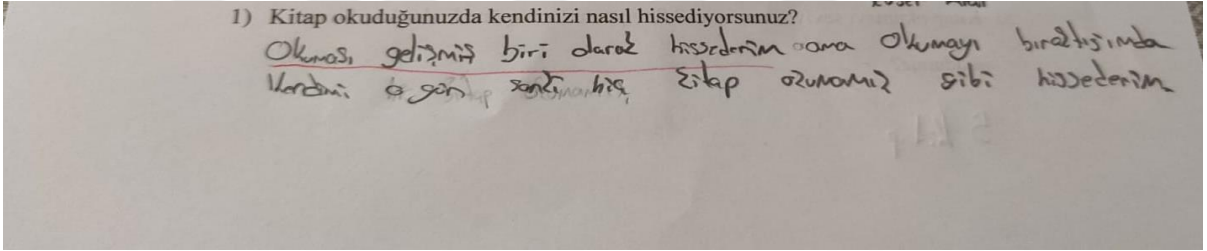 1) Kitap okuduğunuzda kendinizi nasıl hissediyorsunuz?
Okuması gelişmiş biri olarak hissederim ama Okumayı bıraktığımda
kendimi o gün sanki hiç kitap okumamış gibi hissederim.